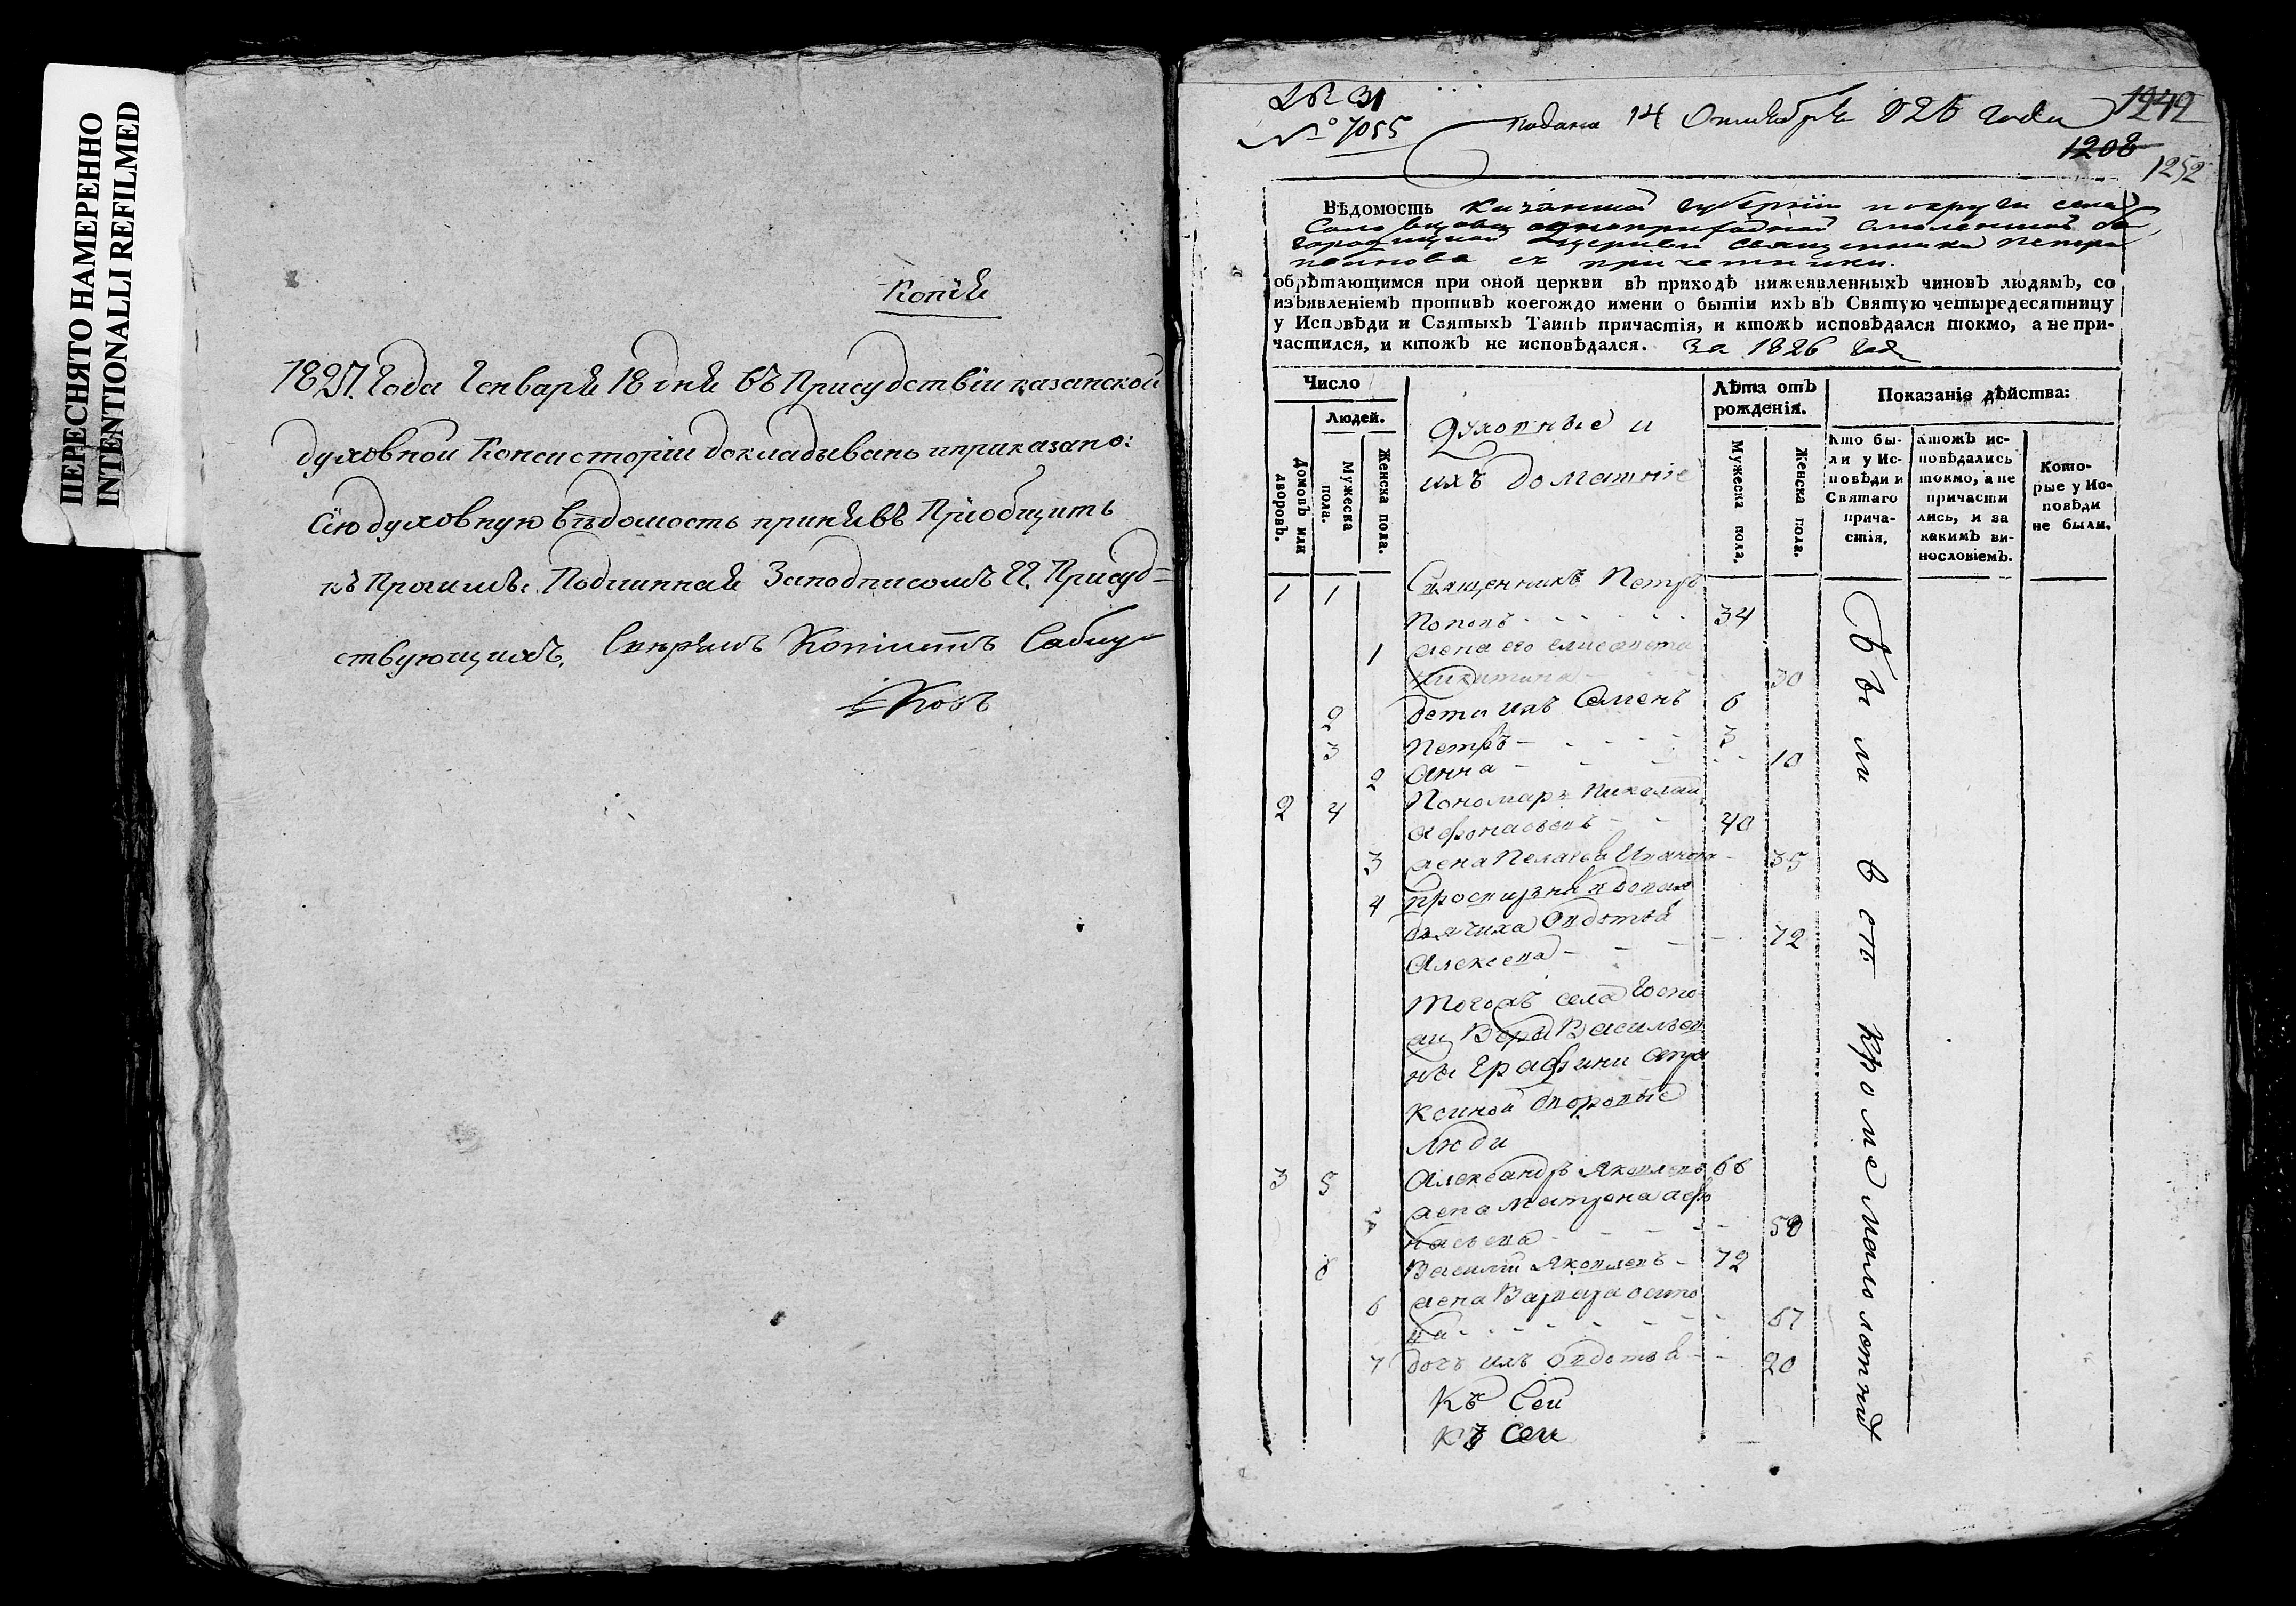 ПЕРЕСНЯТО НАМЕРЕННО
INTENTIONALLI REFILMED
Копія
1827. Года Генваря 18 дня въ Присудствіи казанской
духовной Консисторіи докладывано и приказано:
Сію духовную вѣдомость принявъ Пріобщить
къ Прочимъ. Подлинная За подписомъ ГГ. Присуд=
ствующихъ.
№ 31
№ 7055
Подана 14 Октября 826 года
1249
1208
1252
Вѣдомость Казанской губерніи и округи села
Смоленской бо
городицкой церкви священника Петра
Попова съ причетники.
обрѣтающимся при оной церкви въ приходѣ нижеявленныхъ чиновъ людямъ, со
изъявленіемъ противъ коегождо имени о бытіи ихъ въ Святую четыредесятницу
у Исповѣди и Святыхъ Таинъ причастія, и ктожъ исповѣдался токмо, а не при-
частился, и ктожъ не исповѣдался. За 1826 год
Число
Людей.
Домовъ или дворовъ.
Мужеска пола.
Женска пола.
Духовные и
ихъ домашніе
Лѣта отъ
рожденія.
Мужеска пола.
Женска пола.
Показаніе дѣйства:
Кто бы-
ли у Ис-
повѣди и
Святаго
прича-
стія.
Ктожъ ис-
повѣдались
токмо, а не
причасти
лись, и за
какимъ ви-
нословіемъ.
Кото-
рые у Ис-
повѣди
не были.
1 1 Священникъ Петръ
Поповъ 34
1 жена его елисавета
Никитина 30
2 дети ихъ Семенъ 6
3 Петръ 3
2 Анна 10
2 4 Пономарь Николай
Афонасьевъ 40
3 жена Пелагея Иванова 35
4 просвирня вдовая
дьячиха Овдотья
Алексева 72
Тогожъ села Госпо
жи Веры Васильев
ны Графини Апра
ксиной дворовые
люди
3 5 Александръ Яковлевъ 66
5 жена Матрена афо
насьева 58
6 Василий Яковлевъ 72
6 жена Варвара осипо
ва 67
7 дочь ихъ Овдотья 20
Къ Сей
къ Сей
Бы ли всѣ кроме малолетнихъ